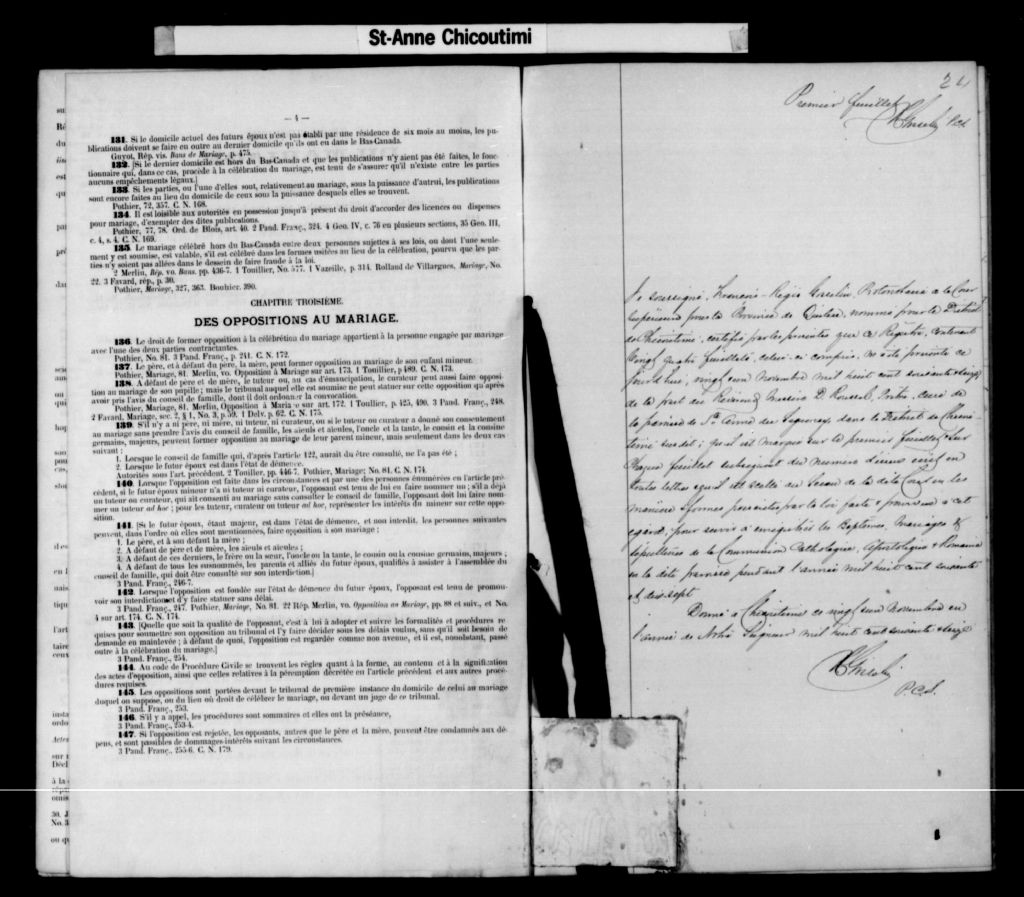 St-Anne Chicoutimi
— 4 —
131. Si le domicile actuel des futurs époux n'est pas établi par une résidence de six mois au moins, les pu-
blications doivent se faire en outre au dernier domicile qu'ils ont eu dans le Bas-Canada.
Guyot, Rép. vis. Bans de Mariage, p. 475.
132. [Si le dernier domicile est hors du Bas-Canada et que les publications n'y aient pas été faites, le fonc-
tionnaire qui, dans ce cas, procède à la célébration du mariage, est tenu de s'assurer qu'il n'existe entre les parties
aucuns empêchements légaux.]
133. Si les parties, ou l'une d'elles sont, relativement au mariage, sous la puissance d'autrui, les publications
sont encore faites au lieu du domicile de ceux sous la puissance desquels elles se trouvent.
Pothier, 72, 357. C. N. 168.
134. Il est loisible aux autorités en possession jusqu'à présent du droit d'accorder des licences ou dispenses
pour mariage, d'exempter des dites publications.
Pothier, 77, 78. Ord. de Blois, art. 40. 2 Pand. Franç., 324. 4 Geo. IV, c. 76 en plusieurs sections, 35 Geo. III,
c. 4, s. 4. C. N. 169.
135. Le mariage célébré hors du Bas-Canada entre deux personnes sujettes à ses lois, ou dont l'une seule-
ment y est soumise, est valable, s'il est célébré dans les formes usitées au lieu de la célébration, pourvu que les par-
ties n'y soient pas allées dans le dessein de faire fraude à la loi.
2 Merlin, Rép. vo. Bans. pp. 436-7. 1 Touiller, No. 577. 1 Vazeille, p 314. Rolland de Villargues, Mariage, No.
22. 3 Favard, rép., p. 30.
Pothier, Mariage, 327, 363. Bouhier. 390.
CHAPITRE TROISIÈME.
DES OPPOSITIONS AU MARIAGE.
136. Le droit de former opposition à la célébrition du mariage appartient à la personne engagée par mariage
avec l'une des deux parties contractantes.
Pothier, No. 81. 3 Pand. Franç., p. 241. C. N. 172.
137. Le père, et à défaut du père, la mère, peut former opposition au mariage de son enfant mineur.
Pothier, Mariage, 81. Merlin, vo. Opposition à Mariage sur art. 173. 1 Toullier, p 489. C. N. 173.
138. A défaut de père et de mère, le tuteur ou, au cas d'émancipation, le curateur peut aussi faire opposi-
tion au mariage de son pupille; mais le tribunal auquel elle est soumise ne peut statuer sur cette opposition qu'après
avoir pris l'avis du conseil de famille, dont il doit ordonner la convocation.
Pothier, Mariage, 81. Merlin, Opposition à Maria e sur art. 172. 1 Toullier, p 425, 490. 3 Pand. Franç., 248.
2 Favard, Mariage, sec. 2, § 1, No. 3, p. 59. 1 Delv. p. 62. C. N. 175.
139. S'il n'y a ni père, ni mère, ni tuteur, ni curateur, ou si le tuteur ou curateur a donné son consentement
au mariage sans prendre l'avis du conseil de famille, les aïeuls et aïeules, l'oncle et la tante, le cousin et la cousine
germains, majeurs, peuvent former opposition au mariage de leur parent mineur, mais seulement dans les deux cas
suivant :
1. Lorsque le conseil de famille qui, d'après l'article 122, aurait du être consulté, ne l'a pas été ;
2. Lorsque le futur époux est dans l'état de démence.
Autorités sous l'art. précédent. 2 Touiller, pp. 446-7. Pothier, Mariage; No. 81. C. N. 174.
140. Lorsque l'opposition est faite dans les circonstances et par une des personnes énumérées en l'article pré-
cédent, si le futur époux mineur n'a ni tuteur ni curateur, l'opposant est tenu de lui en faire nommer un ; s'il a déjà
un tuteur ou curateur, qui ait consenti au mariage sans consulter le conseil de famille, l'opposant doit lui faire nom-
mer un tuteur ad hoc ; pour les tuteur, curateur ou tuteur ad hoc, représenter les intérêts du mineur sur cette oppo-
sition.
141. [Si le futur époux, étant majeur, est dans l'état de démence, et non interdit, les personnes suivantes
peuvent, dans l'ordre où elles sont mentionnées, faire opposition à son mariage :
1. Le père, et à son défaut la mère ;
2. A défaut de père et de mère, les aïeuls et aïeules ;
3. A défaut de ces derniers, le frère ou la sœur, l'oncle ou la tante, le cousin ou la cousine germains, majeurs ;
4. A défaut de tous les susnommés, les parents et alliés du futur époux, qualifiés à assister à l'assemblée du
conseil de famille, qui doit être consulté sur son interdiction.]
3 Pand. Franç., 246-7.
142. Lorsque l'opposition est fondée sur l'état de démence du futur époux, l'opposant est tenu de promou-
voir son interdiction et d'y faire statuer sans délai.
3 Pand. Franç., 247. Pothier, Mariage, No. 81. 22 Rép. Merlin, vo. Opposition au Mariage, pp. 88 et suiv., et No.
4 sur art. 174. C. N. 174.
143. [Quelle que soit la qualité de l'opposant, c'est à lui à adopter et suivre les formalités et procédures re-
quises pour soumettre son opposition au tribunal et l'y faire décider sous les délais voulus, sans qu'il soit besoin de
demande en mainlevée ; à défaut de quoi, l'opposition est regardée comme non avenue, et il est, nonobstant, passé
outre à la célébration du mariage.]
3 Pand. Franç., 254.
144. Au code de Procédure Civile se trouvent les règles quant à la forme, au contenu et à la signification
des actes d'opposition, ainsi que celles relatives à la péremption décrétée en l'article précédent et aux autres procé-
dures requises.
145. Les oppositions sont portées devant le tribunal de première instance du domicile de celui au mariage
duquel on suppose, ou du lieu où droit de célébrer le mariage, ou devant un juge de ce tribunal.
3 Pand. Franç., 253.
146. S'il y a appel, les procédures sont sommaires et elles ont la préséance,
3 Pand. Franç., 253-4.
147. Si l'opposition est rejetée, les opposants, autres que le père et la mère, peuvent être condamnés aux dé-
pens, et sont passibles de dommages-intérêts suivant les circonstances.
3 Pand. Franç., 255-6. C. N. 179.
24
Premier feuillet
P.C.S.
Je soussigné, François-Régis Gosselin, Protonotaire de la Cour
Supérieure pour la Province de Québec, nommé pour le District
de Chicoutimi, certifie par les présentes que ce Régistre, contenant
vingt quatre feuillets, celui-ci compris, m'a été présenté ce
jourd'hui, vingt un Novembre mil huit cent soixante & seize
de la part du Révérend Messire D. Roussel, Prêtre, curé de
la paroisse de Ste Anne du Saguenay, dans le District de Chicou-
timi susdit ; qu'il est marqué sur le premier feuillet & sur
chaque feuillet subséquent du numéro d'icelui écrit en
toutes lettres & qu'il est scellé du Sceau de la dite Cour en la
manière & formes prescrites par la loi faite & pourvue à cet
égard ; pour servir à enregistrer les Baptêmes, Mariages &
Sépultures de la Communion Catholique, Apostolique & Romaine
en la dite paroisse pendant l'année mil huit cent soixante
et dix sept
Donné à Chicoutimi ce vingt un Novembre en
l'année de Notre Seigneur mil huit cent soixante & seize
P.C.S.